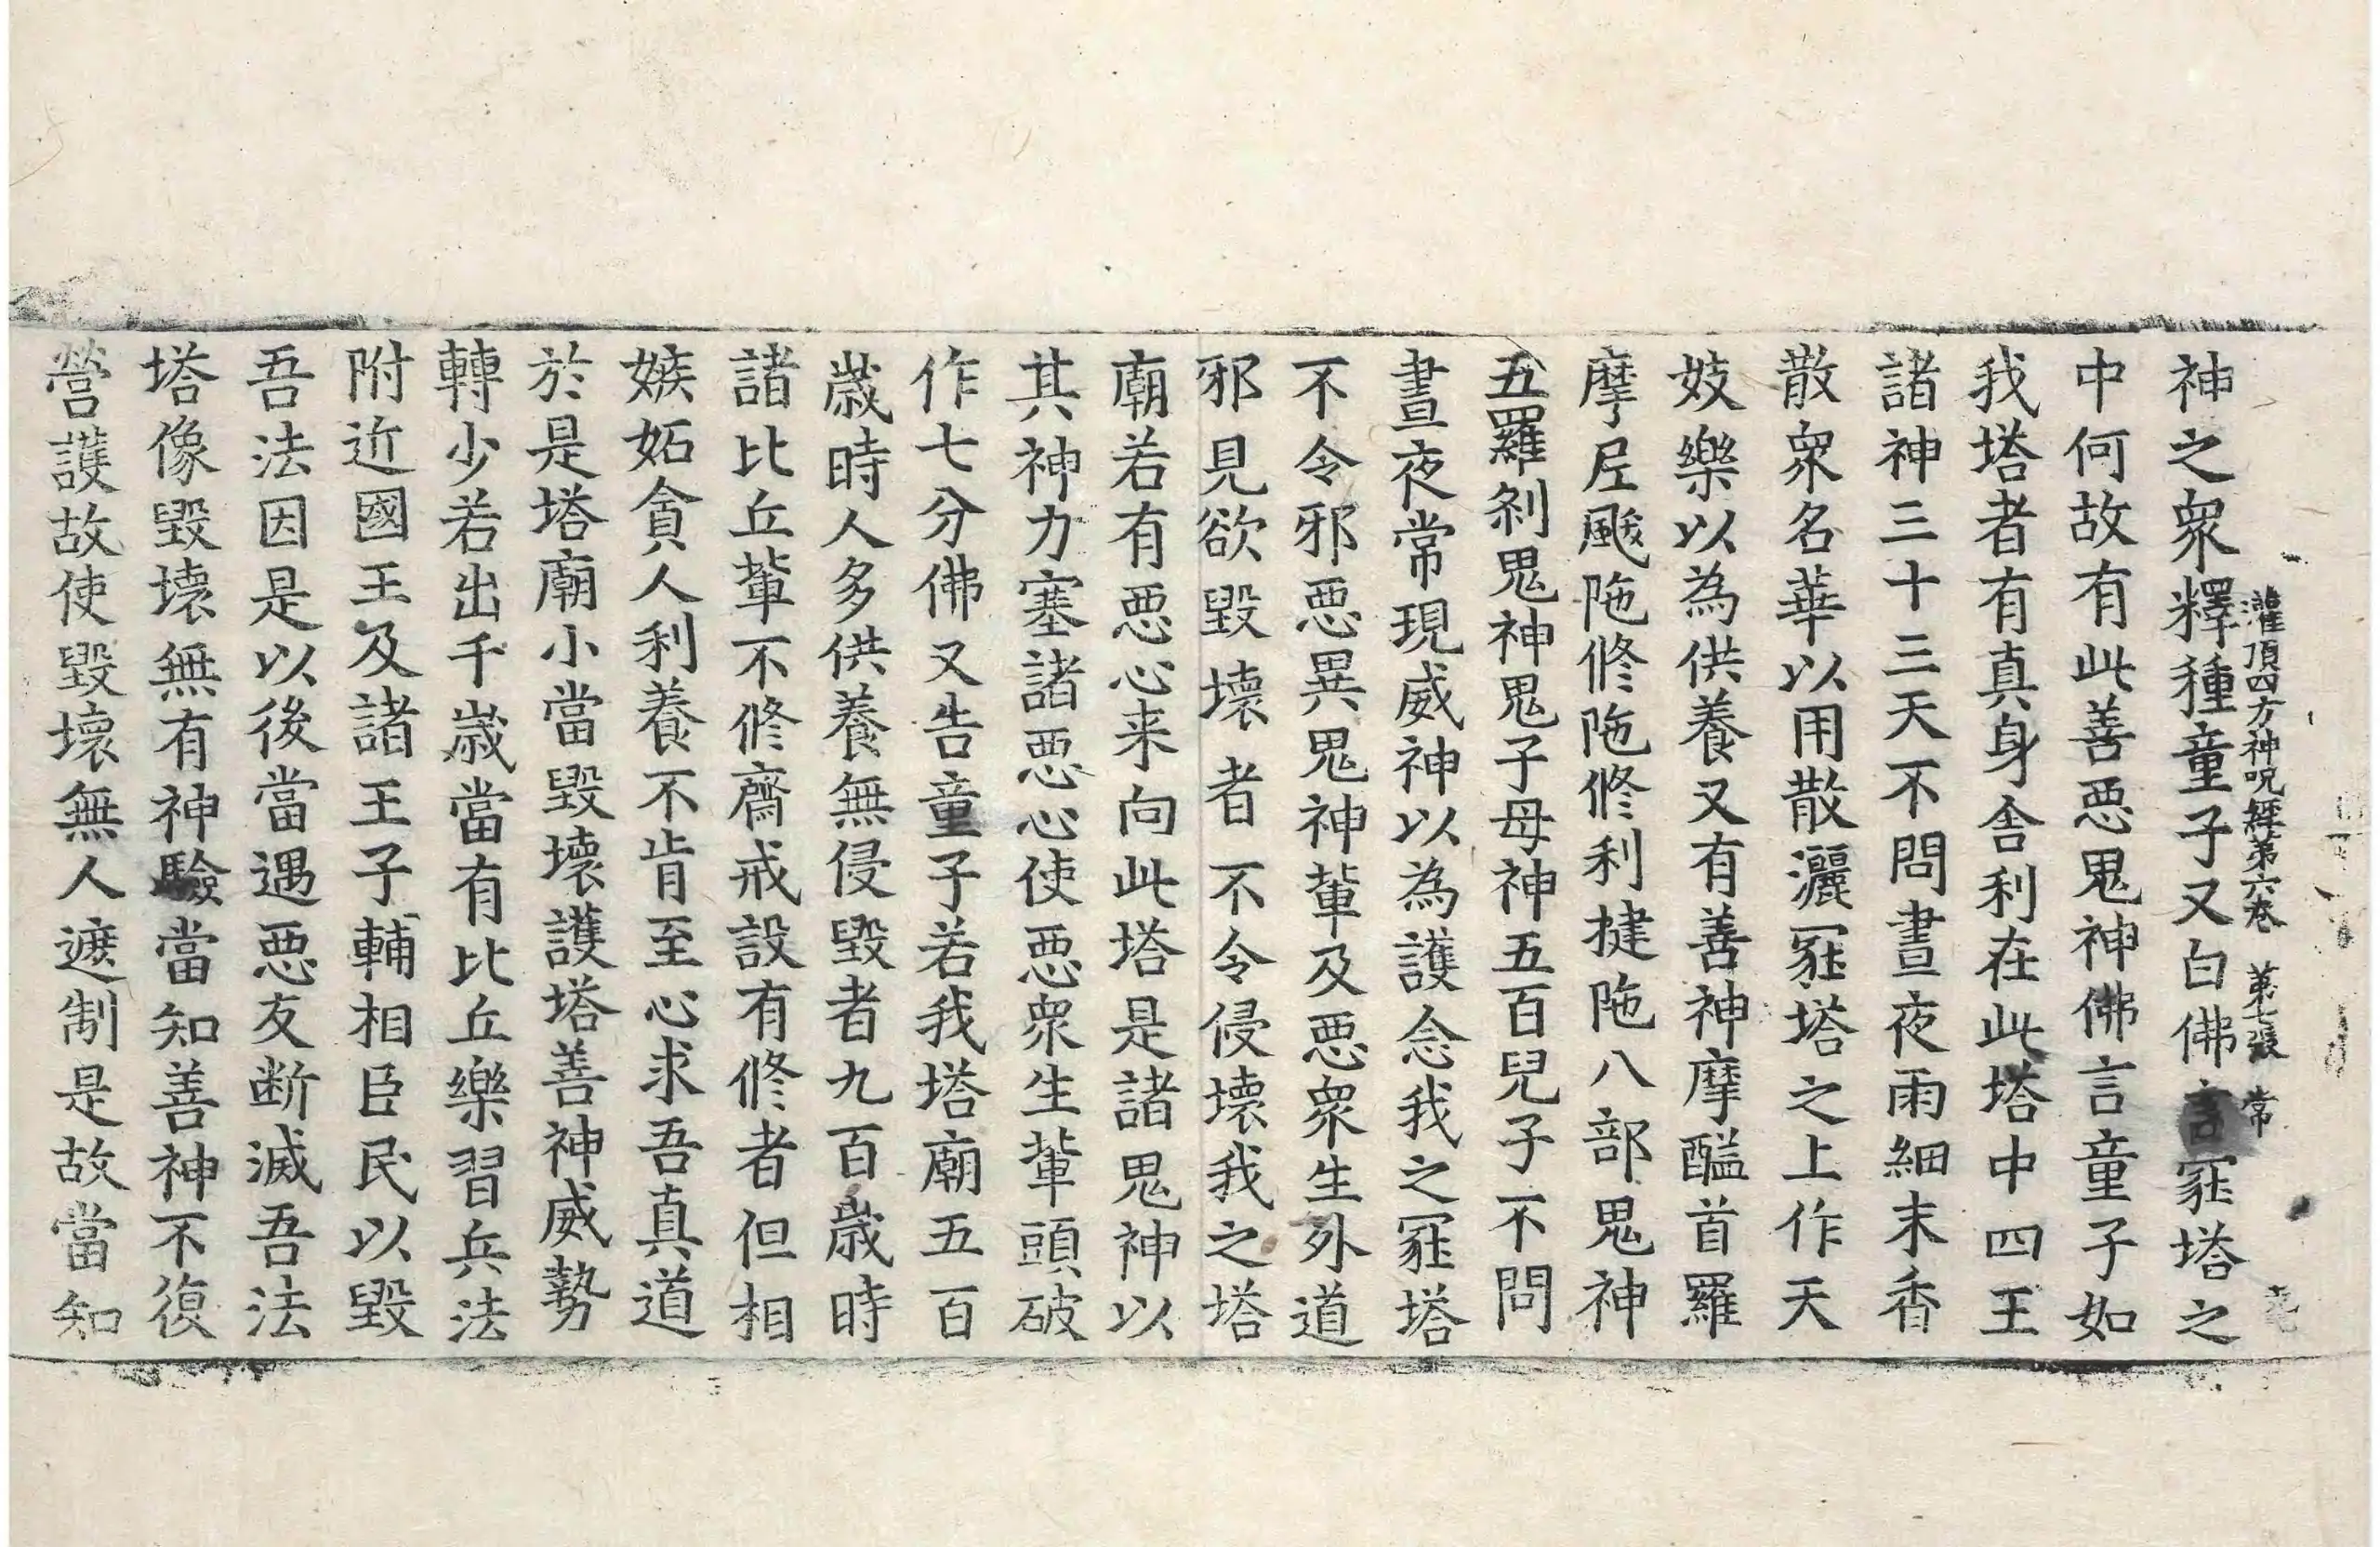 灌頂四方神呪經第六卷 第七張 常
神之衆釋種童子又白佛言冢塔之
中何故有此善惡鬼神佛言童子如
我塔者有真身舍利在此塔中四王
諸神三十三天不問晝夜雨細末香
散衆名華以用散灑冢塔之上作天
妓樂以為供養又有善神摩醯首羅
摩尼颰陁修陁修利揵陁八部鬼神
五羅刹鬼神鬼子母神五百兒子不問
晝夜常現威神以為護念我之冢塔
不令邪惡異鬼神輩及惡衆生外道
邪見欲毀壞者不令侵壞我之塔
廟若有惡心来向此塔是諸鬼神以
其神力塞諸惡心使惡衆生輩頭破
作七分佛又告童子若我塔廟五百
歲時人多供養無侵毀者九百歲時
諸比丘輩不修齋戒設有修者但相
嫉妬貪人利養不肯至心求吾真道
於是塔廟小當毀壞護塔善神威勢
轉少若出千歲當有比丘樂習兵法
附近國王及諸王子輔相臣民以毀
吾法因是以後當遇惡友断滅吾法
塔像毀壞無有神驗當知善神不復
營護故使毀壞無人遮制是故當知